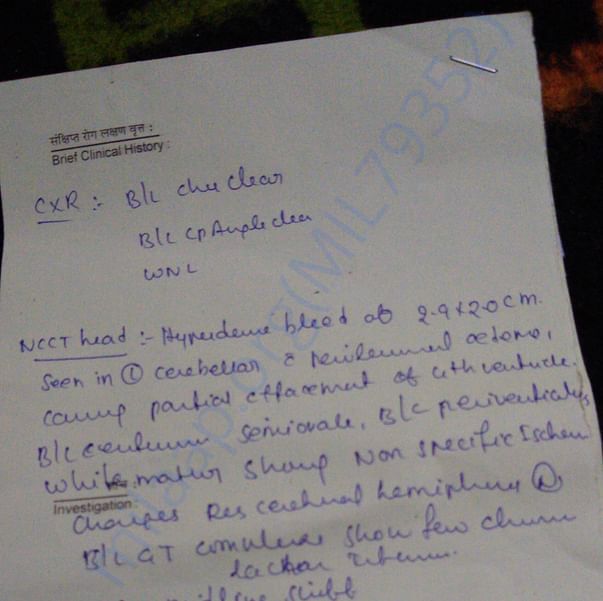 संक्षिप्त रोग लक्षण वृत्त :
Brief Clinical History :
CXR :- B/L che clear
B/L CP Angle clear
WNL
NCCT head :- Hyperdense bleed of 2.9x2.0 cm.
Seen in Ⓛ cerebellar c perilesional
causing partial effacement of 4th ventricle.
B/L centrum semiovale, B/L periventricular
white matter show Non specific Ischem
Investigation :
changes Res cerebral hemisphere Ⓝ
B/L GT complexes show few chronic
lacunar
milaap.org(MIL793527)